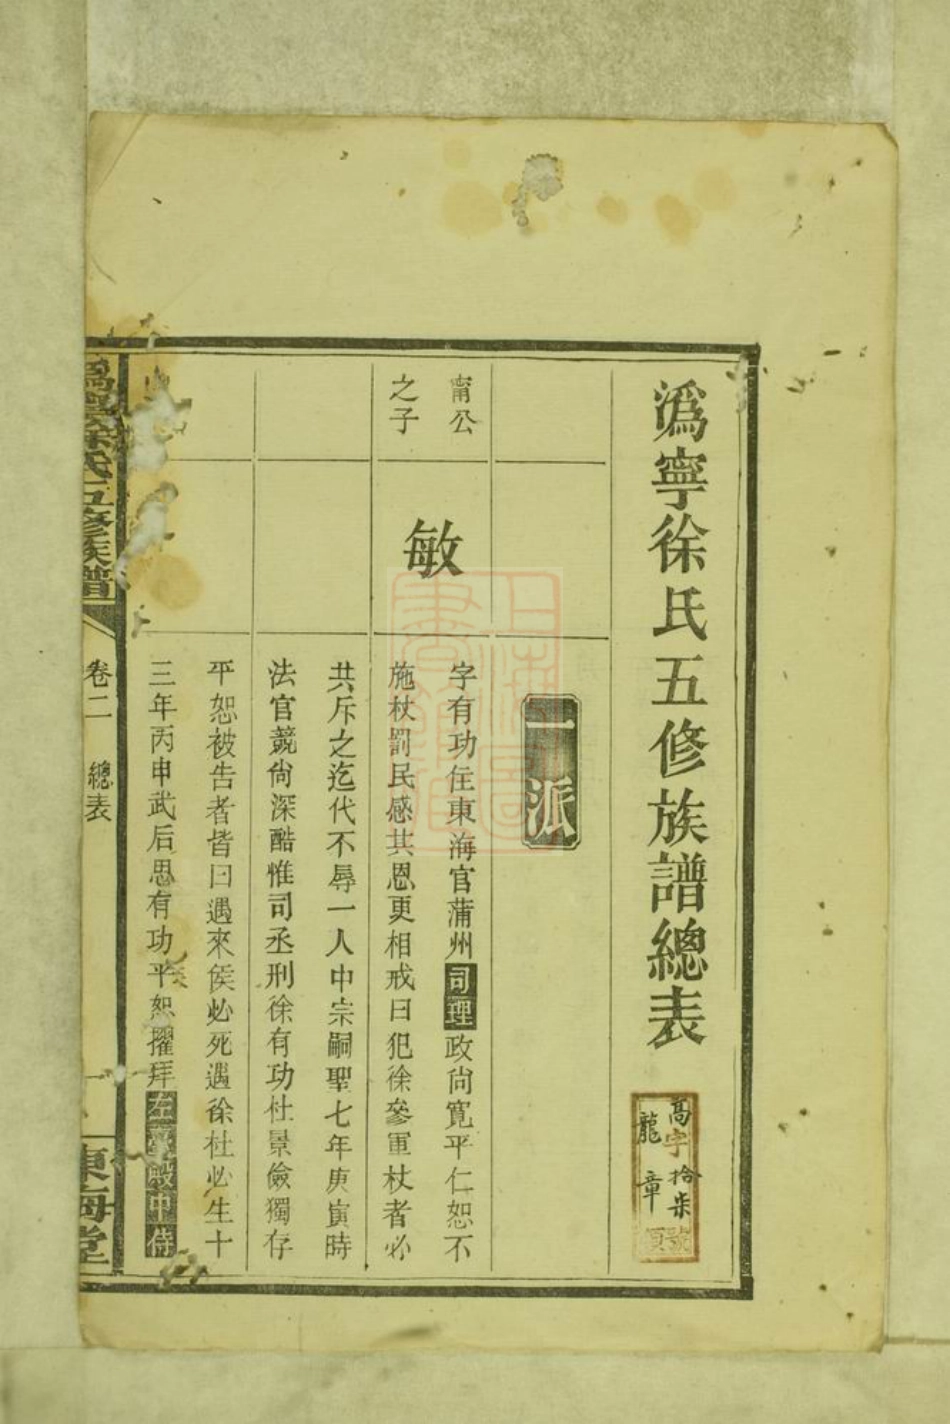 溈寧徐氏五修族譜總表
高字拾柒號
龍章
一派
甯公
之子
敏
字有功住東海官蒲州司理政尙寬平仁恕不
施杖罰民感其恩更相戒曰犯徐參軍杖者必
共斥之迄代不辱一人中宗嗣聖七年庚寅時
法官競尙深酷惟司丞刑徐有功杜景儉獨存
平恕被告者皆曰遇來侯必死遇徐杜必生十
三年丙申武后思有功平恕擢拜左臺殿中侍
徐氏五修族譜
卷二
總表
一
東海堂